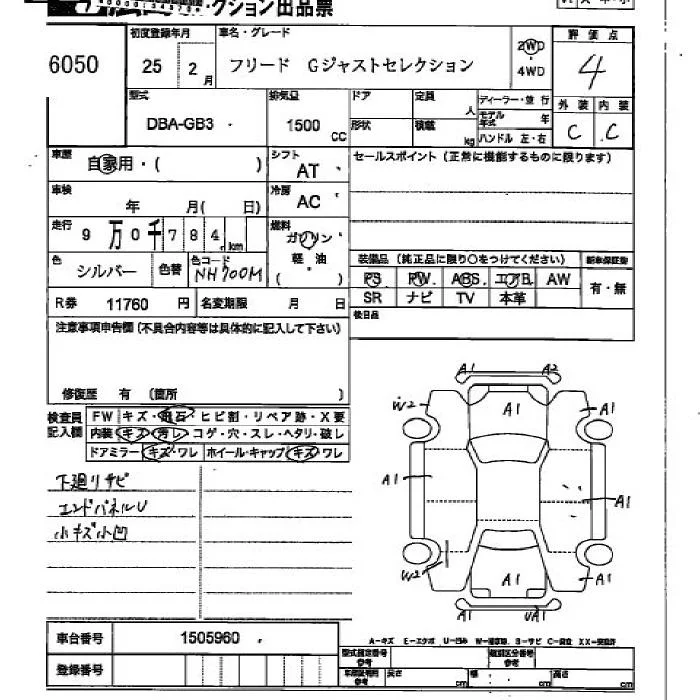 クション出品票
6050
初度登録年月
25 2月
車名・グレード
フリード Gジャストセレクション
2WD
4WD
評価点
4
外装 内装
C C
型式
DBA-GB3
排気量
1500 CC
ドア
形状
定員
人
積載
kg
ディーラー・並行
モデル年式 年
ハンドル 左・右
車歴
自家用・( )
シフト
AT
セールスポイント(正常に機能するものに限ります)
車検
年 月( 日)
冷房
AC
走行
9万0千784km
燃料
ガソリン
軽油
( )
色
シルバー
色替
色コード
NH700M
装備品(純正品に限り○をつけてください)
新車保証書
PS PW ABS エアB AW
SR ナビ TV 本革
有・無
R券 11760 円
名変期限 月 日
後日品
注意事項申告欄(不具合内容等は具体的に記入して下さい)
修復歴 有 (箇所 )
検査員記入欄
FW キズ・飛石・ヒビ割・リペア跡・X要
内装 キズ・汚レ・コゲ・穴・スレ・ヘタリ・破レ
ドアミラー キズ・ワレ ホイール・キャップ キズ・ワレ
下廻リサビ
エンドパネルU
小キズ小凹
A1 A2
W2 A1 A1
A1 A1
W2 A1 A1
A1 UA1
車台番号 1505960
登録番号
A-キズ E-エクボ U-凹み
型式指定番号
参考
類別区分番号
参考
長さ cm 幅 cm 高さ cm